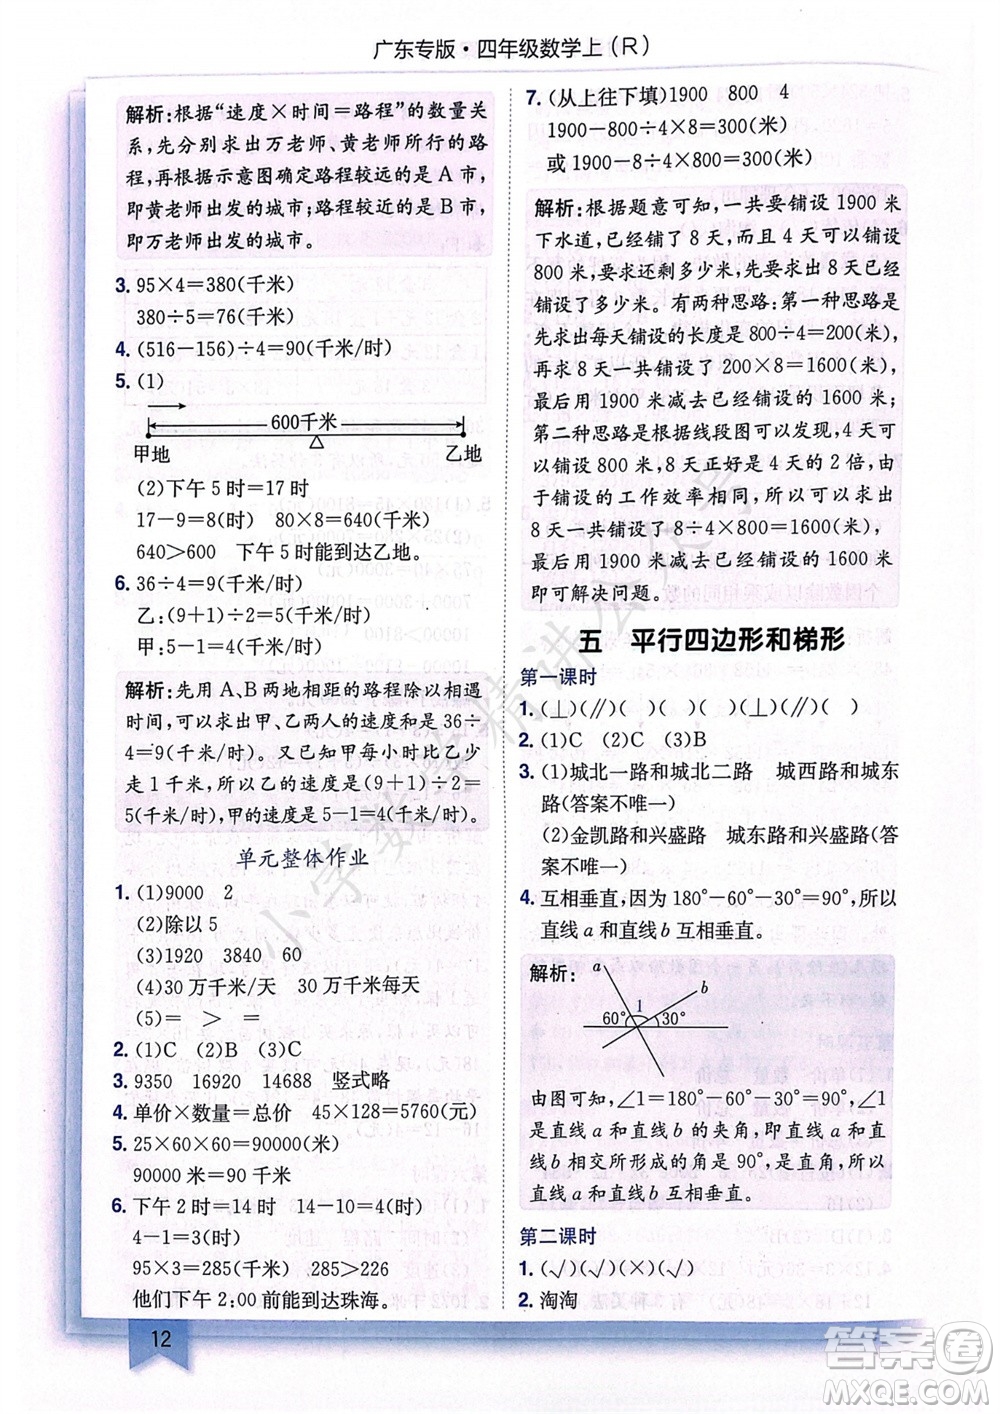 广东专版·四年级数学上(R)
解析:根据“速度×时间=路程”的数量关
系,先分别求出万老师、黄老师所行的路
程,再根据示意图确定路程较远的是 A 市,
即黄老师出发的城市;路程较近的是 B 市,
即万老师出发的城市。
3. 95×4=380(千米)
380÷5=76(千米)
4. (516-156)÷4=90(千米/时)
5. (1)
600千米
甲地 乙地
(2)下午 5 时=17 时
17-9=8(时) 80×8=640(千米)
640>600 下午 5 时能到达乙地。
6. 36÷4=9(千米/时)
乙:(9+1)÷2=5(千米/时)
甲:5-1=4(千米/时)
解析:先用 A、B 两地相距的路程除以相遇
时间,可以求出甲、乙两人的速度和是 36÷
4=9(千米/时)。又已知甲每小时比乙少
走 1 千米,所以乙的速度是(9+1)÷2=
5(千米/时),甲的速度是 5-1=4(千米/时)。
单元整体作业
1. (1)9000 2
(2)除以 5
(3)1920 3840 60
(4)30 万千米/天 30 万千米每天
(5)= > >
2. (1)C (2)B (3)C
3. 9350 16920 14688 竖式略
4. 单价×数量=总价 45×128=5760(元)
5. 25×60×60=90000(米)
90000 米=90 千米
6. 下午 2 时=14 时 14-10=4(时)
4-1=3(时)
95×3=285(千米) 285>226
他们下午 2:00 前能到达珠海。
12
7. (从上往下填)1900 800 4
1900-800÷4×8=300(米)
或 1900-8÷4×800=300(米)
解析:根据题意可知,一共要铺设 1900 米
下水道,已经铺了 8 天,而且 4 天可以铺设
800 米,要求还剩多少米,先要求出 8 天已经
铺设了多少米。有两种思路:第一种思路是
先求出每天铺设的长度是 800÷4=200(米),
再求出 8 天一共铺设了 200×8=1600(米),
最后用 1900 米减去已经铺设的 1600 米。
第二种思路是根据线段图可以发现,4 天可
以铺设 800 米,8 天正好是 4 天的 2 倍,由
于铺设的工作效率相同,所以可以先求出
8 天一共铺设了 8÷4×800=1600(米),最
后用 1900 米减去已经铺设的 1600 米
即可解决问题。
五 平行四边形和梯形
第一课时
1. (⊥)(∥)( )( )(⊥)(∥)( )
2. (1)C (2)C (3)B
3. (1)城北一路和城北二路 城西路和城东
路(答案不唯一)
(2)金凯路和兴盛路 城东路和兴盛路(答
案不唯一)
4. 互相垂直,因为 180°-60°-30°=90°,所以
直线 a 和直线 b 互相垂直。
解析: a b
60° 1 30°
由图可知,∠1=180°-60°-30°=90°,
即直线 a 和直线 b 的夹角,即直线 a 和直线
b 相交所形成的角是 90°,所以
直线 a 和直线 b 互相垂直。
第二课时
1. (√)(√)(×)(√)
2. 淘淘
小学数学精讲公众号
答案圈
MXQE.COM